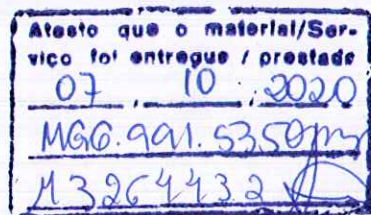 Atesto que o material/Ser-
viço foi entregue / prestado
07 , 10 , 2020
MG6.991.535
M3264432